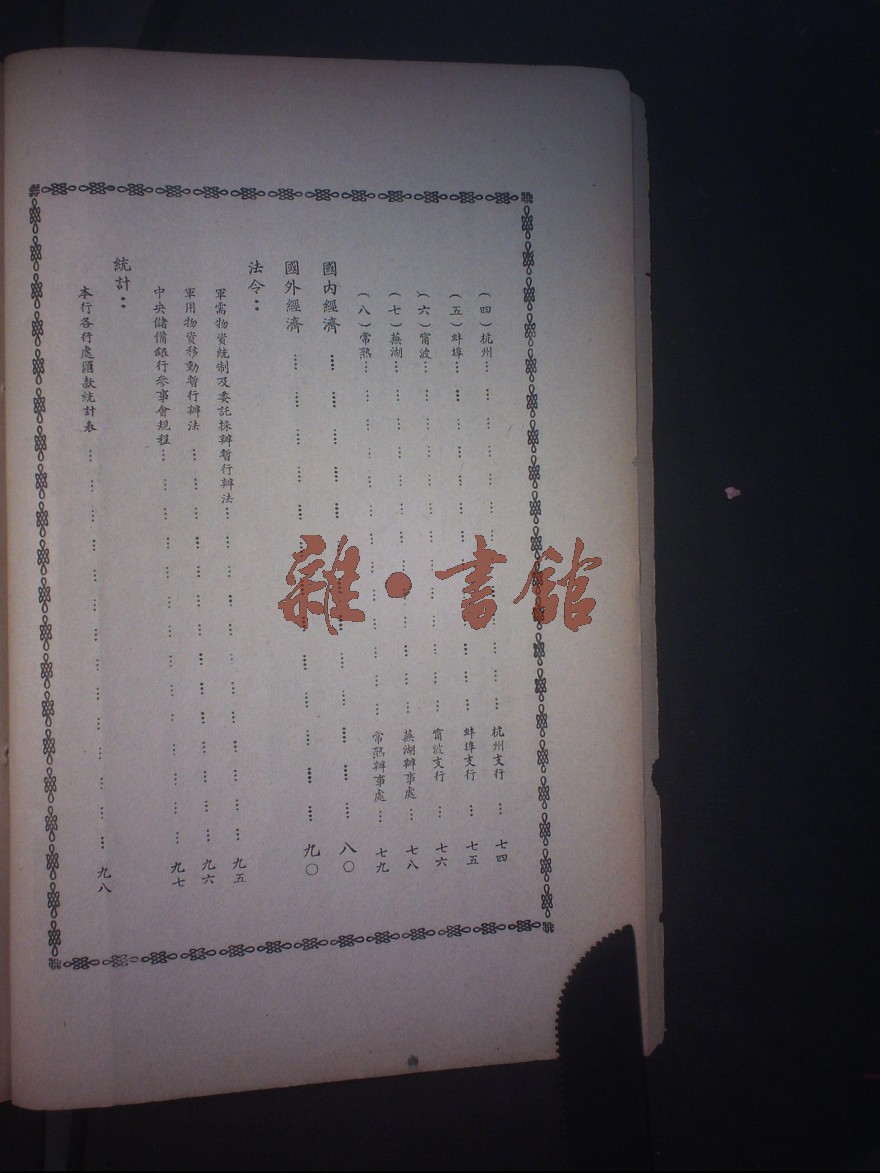 (四)杭州… … … … … … … … … … … … 杭州支行 … 七四
(五)蚌埠… … … … … … … … … … … … 蚌埠支行 … 七五
(六)甯波… … … … … … … … … … … … 甯波支行 … 七六
(七)蕪湖… … … … … … … … … … … … 蕪湖辦事處 … 七八
(八)常熟… … … … … … … … … … … … 常熟辦事處 … 七九
國內經濟 … … … … … … … … … … … … 八〇
國外經濟 … … … … … … … … … … … … 九〇
法令：
軍需物資統制及委託採辦暫行辦法… … … … … … … … … … … 九五
軍用物資移動暫行辦法 … … … … … … … … … … … … … … 九六
中央儲備銀行參事會規程… … … … … … … … … … … … … … 九七
統計：
本行各行處匯款統計表 … … … … … … … … … … … … … … 九八
雜·書館